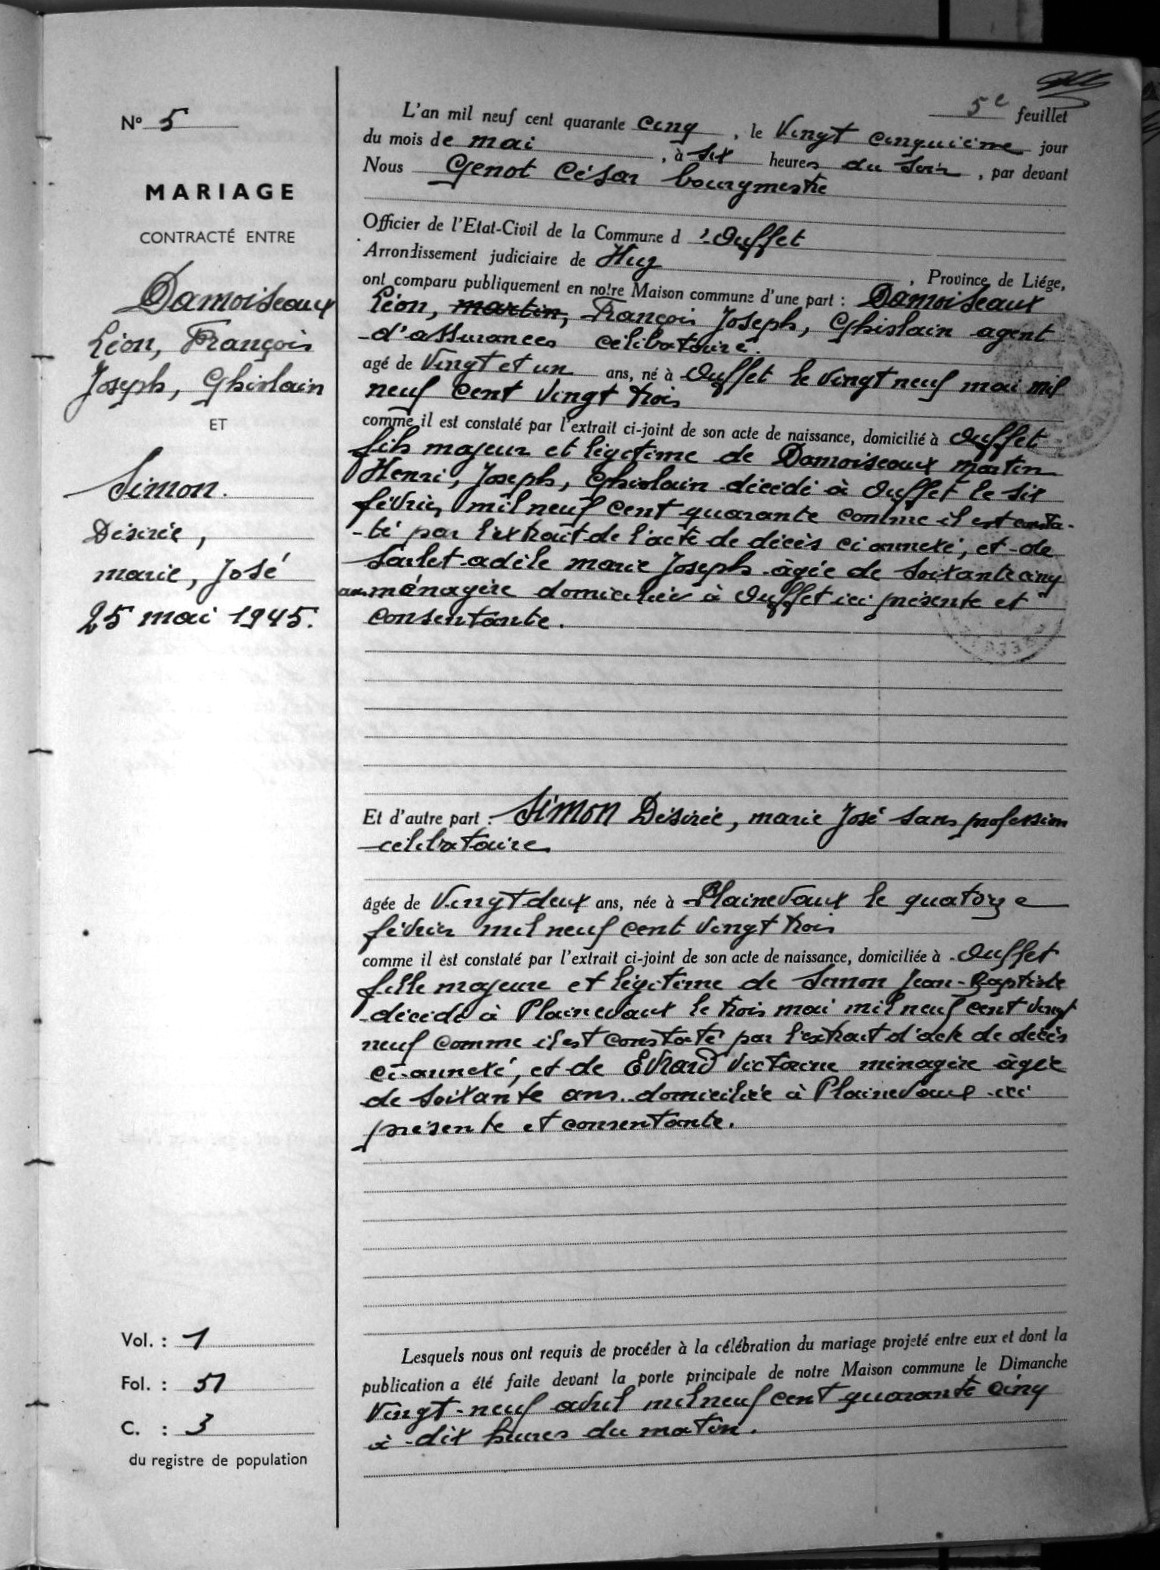 5e feuillet
N° 5
MARIAGE
CONTRACTÉ ENTRE
Damoiseaux
Léon, François
Joseph, Ghislain
ET
Simon.
Désirée,
marie, José
25 mai 1945.
Vol. : 1
Fol. : 51
C. : 3
du registre de population
L'an mil neuf cent quarante cinq, le Vingt cinquième jour
du mois de mai, à six heures du soir, par devant
Nous Genot César bourgmestre
Officier de l'Etat-Civil de la Commune d'Ouffet
Arrondissement judiciaire de Huy, Province de Liége,
ont comparu publiquement en notre Maison commune d'une part : Damoiseaux
Léon, martin, François Joseph, Ghislain agent
d'assurances célibataire.
agé de Vingt et un ans, né à Ouffet le vingt neuf mai mil
neuf cent vingt trois
comme il est constaté par l'extrait ci-joint de son acte de naissance, domicilié à Ouffet
fils majeur et légitime de Damoiseaux martin
Henri, Joseph, Ghislain décédé à Ouffet le six
février mil neuf cent quarante comme il est consta-
-té par l'extrait de l'acte de décès ci annexé, et de
adèle marie Joseph âgée de soixante cinq
ans ménagère domiciliée à Ouffet ici présente et
consentante.
Et d'autre part : Simon Désirée, marie José sans profession
célibataire
âgée de Vingt deux ans, née à Plainevaux le quatorze
février mil neuf cent vingt trois
comme il est constaté par l'extrait ci-joint de son acte de naissance, domiciliée à Ouffet
fille majeure et légitime de Simon Jean-Baptiste
décédé à Plainevaux le trois mai mil neuf cent vingt
neuf comme il est constaté par l'extrait d'acte de décès
ci-annexé, et de Evrard Victorine ménagère âgée
de soixante ans domiciliée à Plainevaux ici
présente et consentante.
Lesquels nous ont requis de procéder à la célébration du mariage projeté entre eux et dont la
publication a été faite devant la porte principale de notre Maison commune le Dimanche
Vingt-neuf avril mil neuf cent quarante cinq
à dix heures du matin.